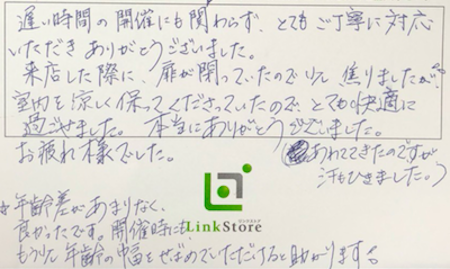 遅い時間の開催にも関わらず、とてもご丁寧に対応
いただきありがとうございました。
来店した際に、扉が閉っていたので少し焦りましたが、
室内を涼しく保ってくださっていたので、とても快適に
過ごせました。本当にありがとうございました。
お疲れ様でした。
(あわててきたのですが
汗もひきました。)
LinkStore
☆年齢差があまりなく、
良かったです。開催時にも、
もう少し年齢の巾をせばめていただけると助かります。